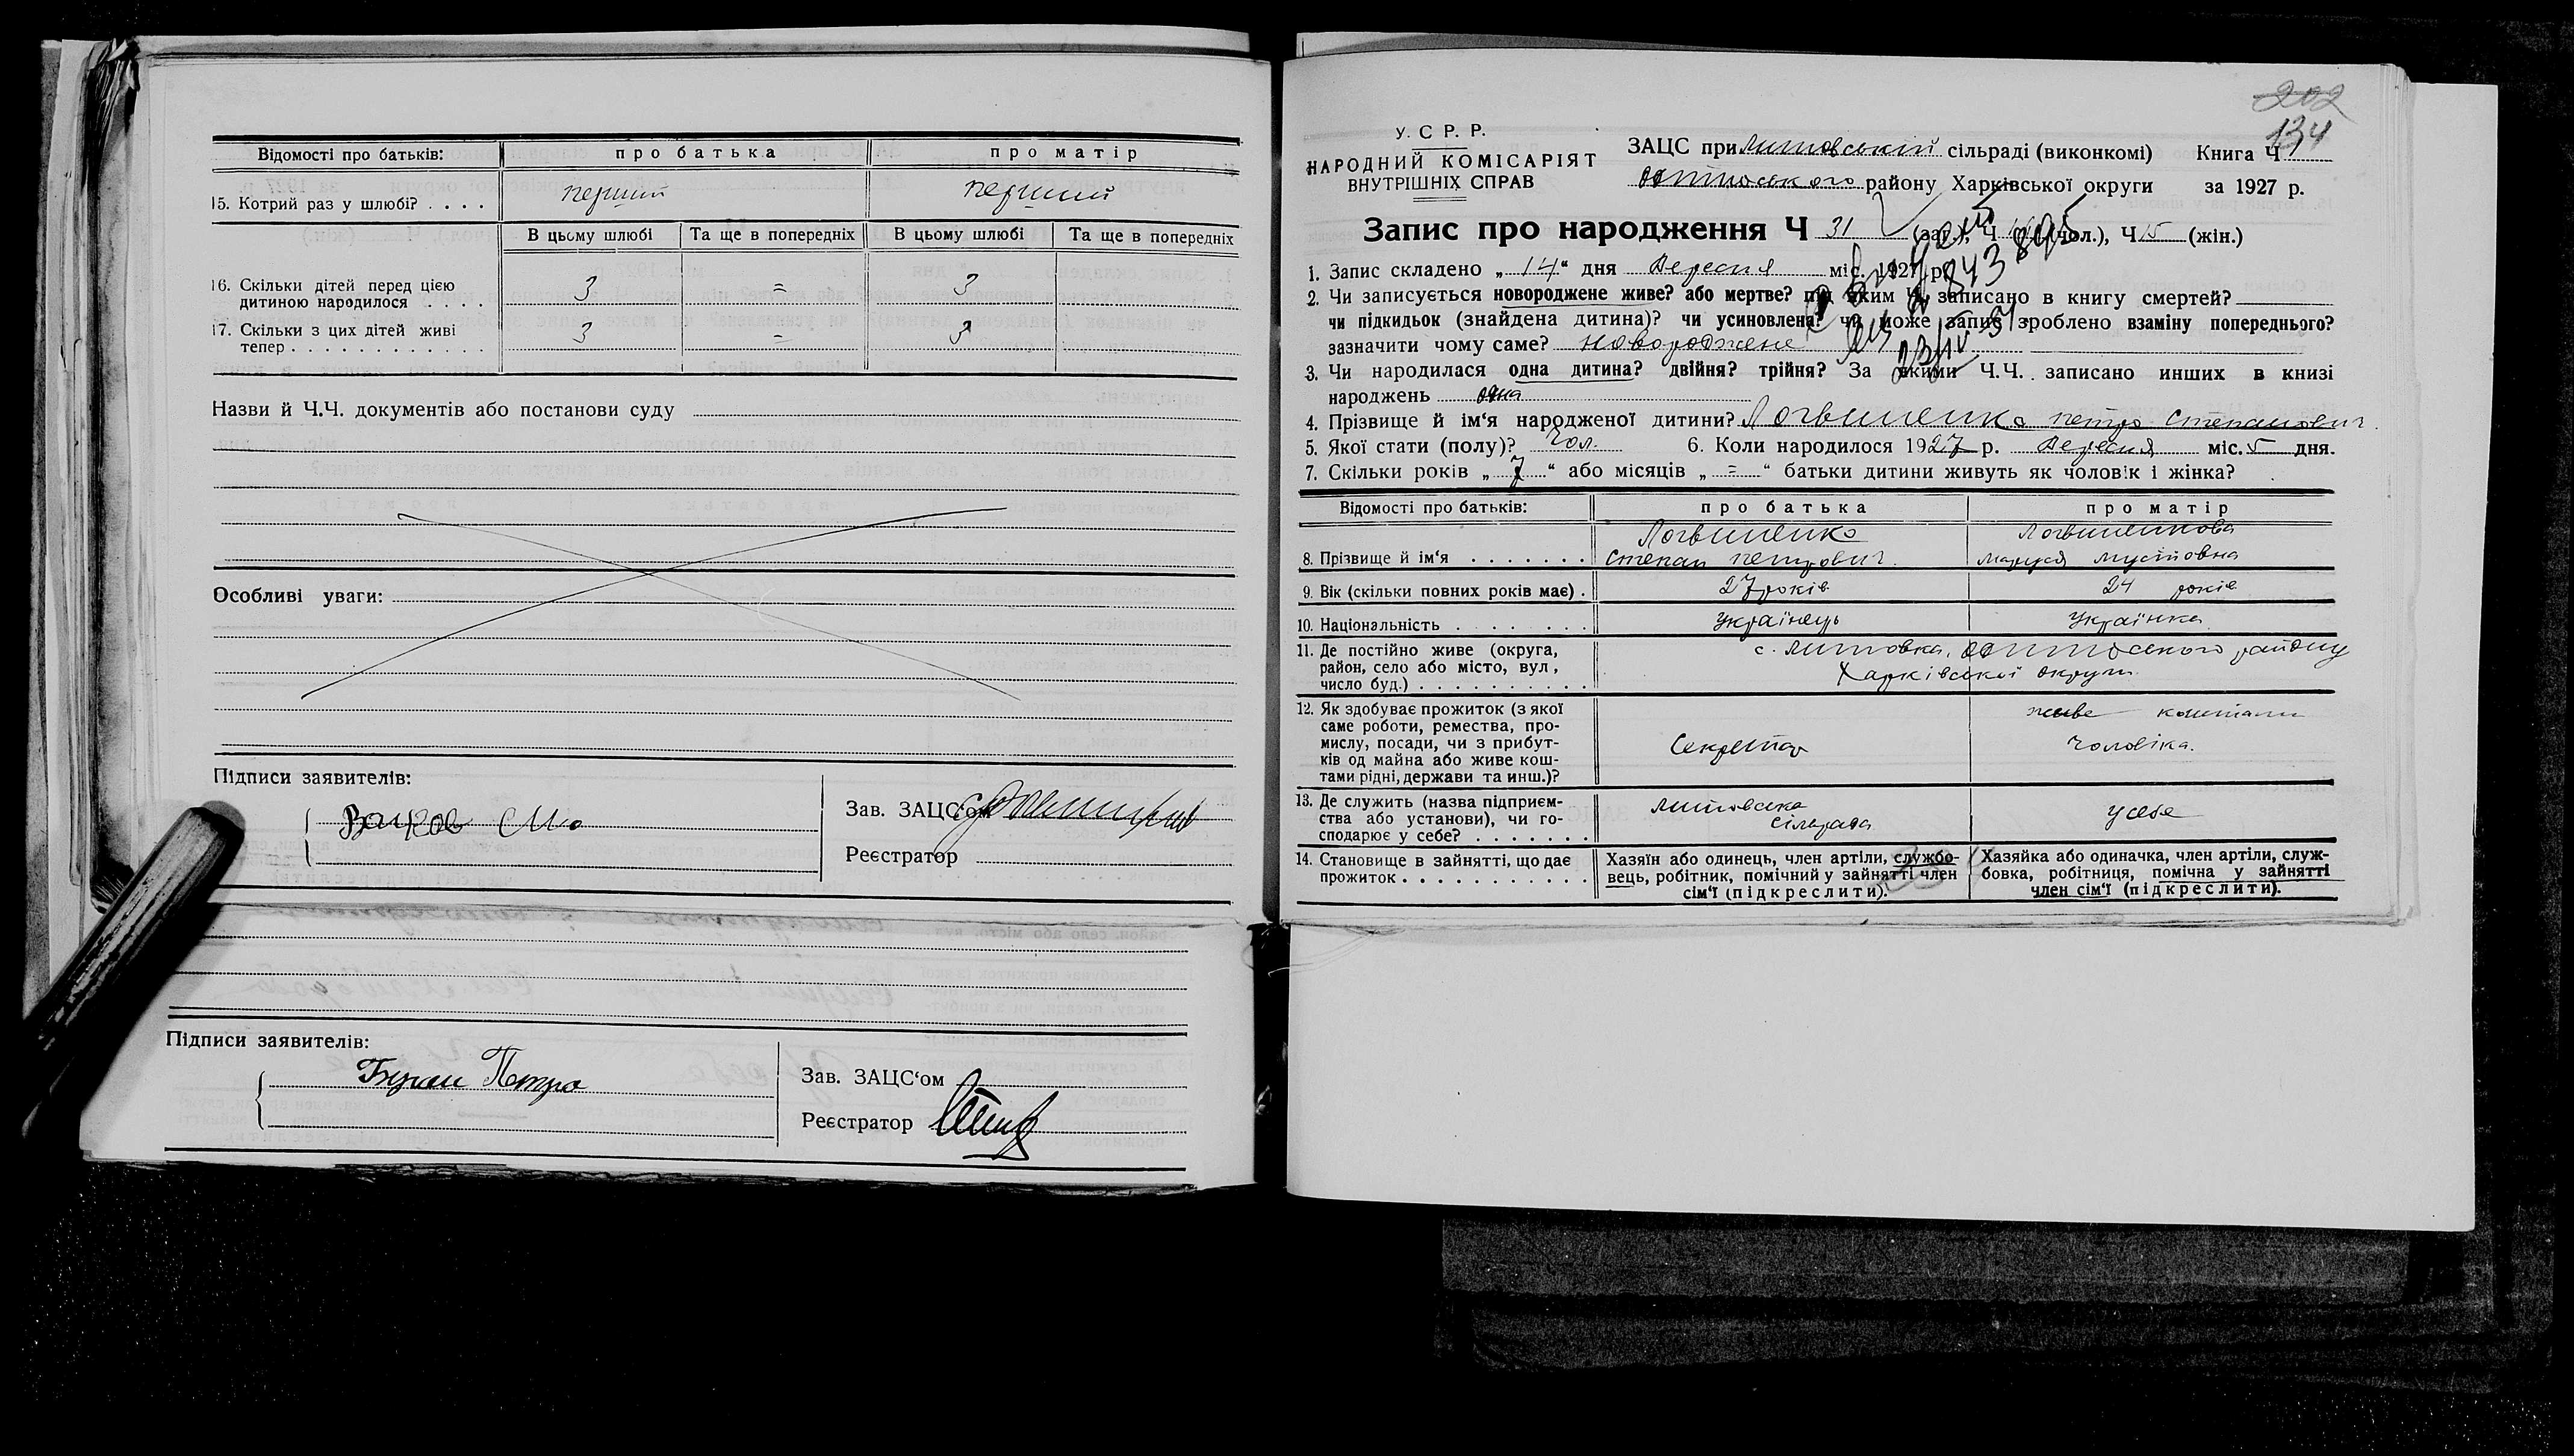 Відомості про батьків: про батька про матір
15. Котрий раз у шлюбі? . . . . перший перший
В цьому шлюбі Та ще в попередніх В цьому шлюбі Та ще в попередніх
16. Скільки дітей перед цією
дитиною народилося . . . . 3 = 3
17. Скільки з цих дітей живі
тепер . . . . . . . . . . . . 3 = 3
Назви й Ч.Ч. документів або постанови суду
Особливі уваги:
Підписи заявителів:
Зав. ЗАЦС'ом
Реєстратор
Підписи заявителів:
Петро
Зав. ЗАЦС'ом
Реєстратор
202
134
У. С. Р. Р.
НАРОДНИЙ КОМІСАРІЯТ
ВНУТРІШНІХ СПРАВ
ЗАЦС при Литовській сільраді (виконкомі) Книга Ч
району Харківської округи за 1927 р.
Запис про народження Ч 31 (заг.), Ч (чол.), Ч 15 (жін.)
1. Запис складено „ 14 “ дня Вересня міс. 1927 р.
2. Чи записується новороджене живе? або мертве? під яким Ч. записано в книгу смертей?
чи підкидьок (знайдена дитина)? чи усиновлена? чи може запис зроблено взаміну попереднього?
зазначити чому саме? новороджене
3. Чи народилася одна дитина? двійня? трійня? За якими Ч.Ч. записано инших в книзі
народжень одна
4. Прізвище й ім'я народженої дитини? Логвиненко петро Степанович
5. Якої стати (полу)? Чол. 6. Коли народилося 1927 р. Вересня міс. 5 дня.
7. Скільки років „ 7 “ або місяців „ = “ батьки дитини живуть як чоловік і жінка?
Відомості про батьків: про батька про матір
Логвиненко Логвиненкова
8. Прізвище й ім'я . . . . . . . Степан петрович. Маруся
9. Вік (скільки повних років має) . 27 років 24 років
10. Національність . . . . . . . Українець Українка
11. Де постійно живе (округа,
район, село або місто, вул,
число буд.) . . . . . . . . . . с. Литовка, району
Харківської округи
12. Як здобуває прожиток (з якої
саме роботи, ремества, про-
мислу, посади, чи з прибут-
ків од майна або живе кош-
тами рідні, держави та инш.)? Секретар живе коштами
чоловіка.
13. Де служить (назва підприєм-
ства або установи), чи го-
сподарює у себе? . . . . . . . Литовська
сільрада у себе
14. Становище в зайнятті, що дає
прожиток . . . . . . . . . . .
Хазяїн або одинець, член артіли, службо-
вець, робітник, помічний у зайнятті член
сім'ї (підкреслити).
Хазяйка або одиначка, член артіли, служ-
бовка, робітниця, помічна у зайнятті
член сім'ї (підкреслити).